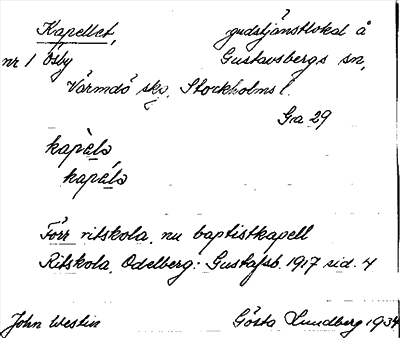 Kapellet, gudstjänstlokal å
nr 1 Ösby Gustavsbergs sn,
Värmdö skg. Stockholms l.
Ga 29
kapèlə
kapélə
Förr ritskola, nu baptistkapell
Ritskola, Odelberg: Gustafsb. 1917 sid. 4
John Westin Gösta Lundberg 1934